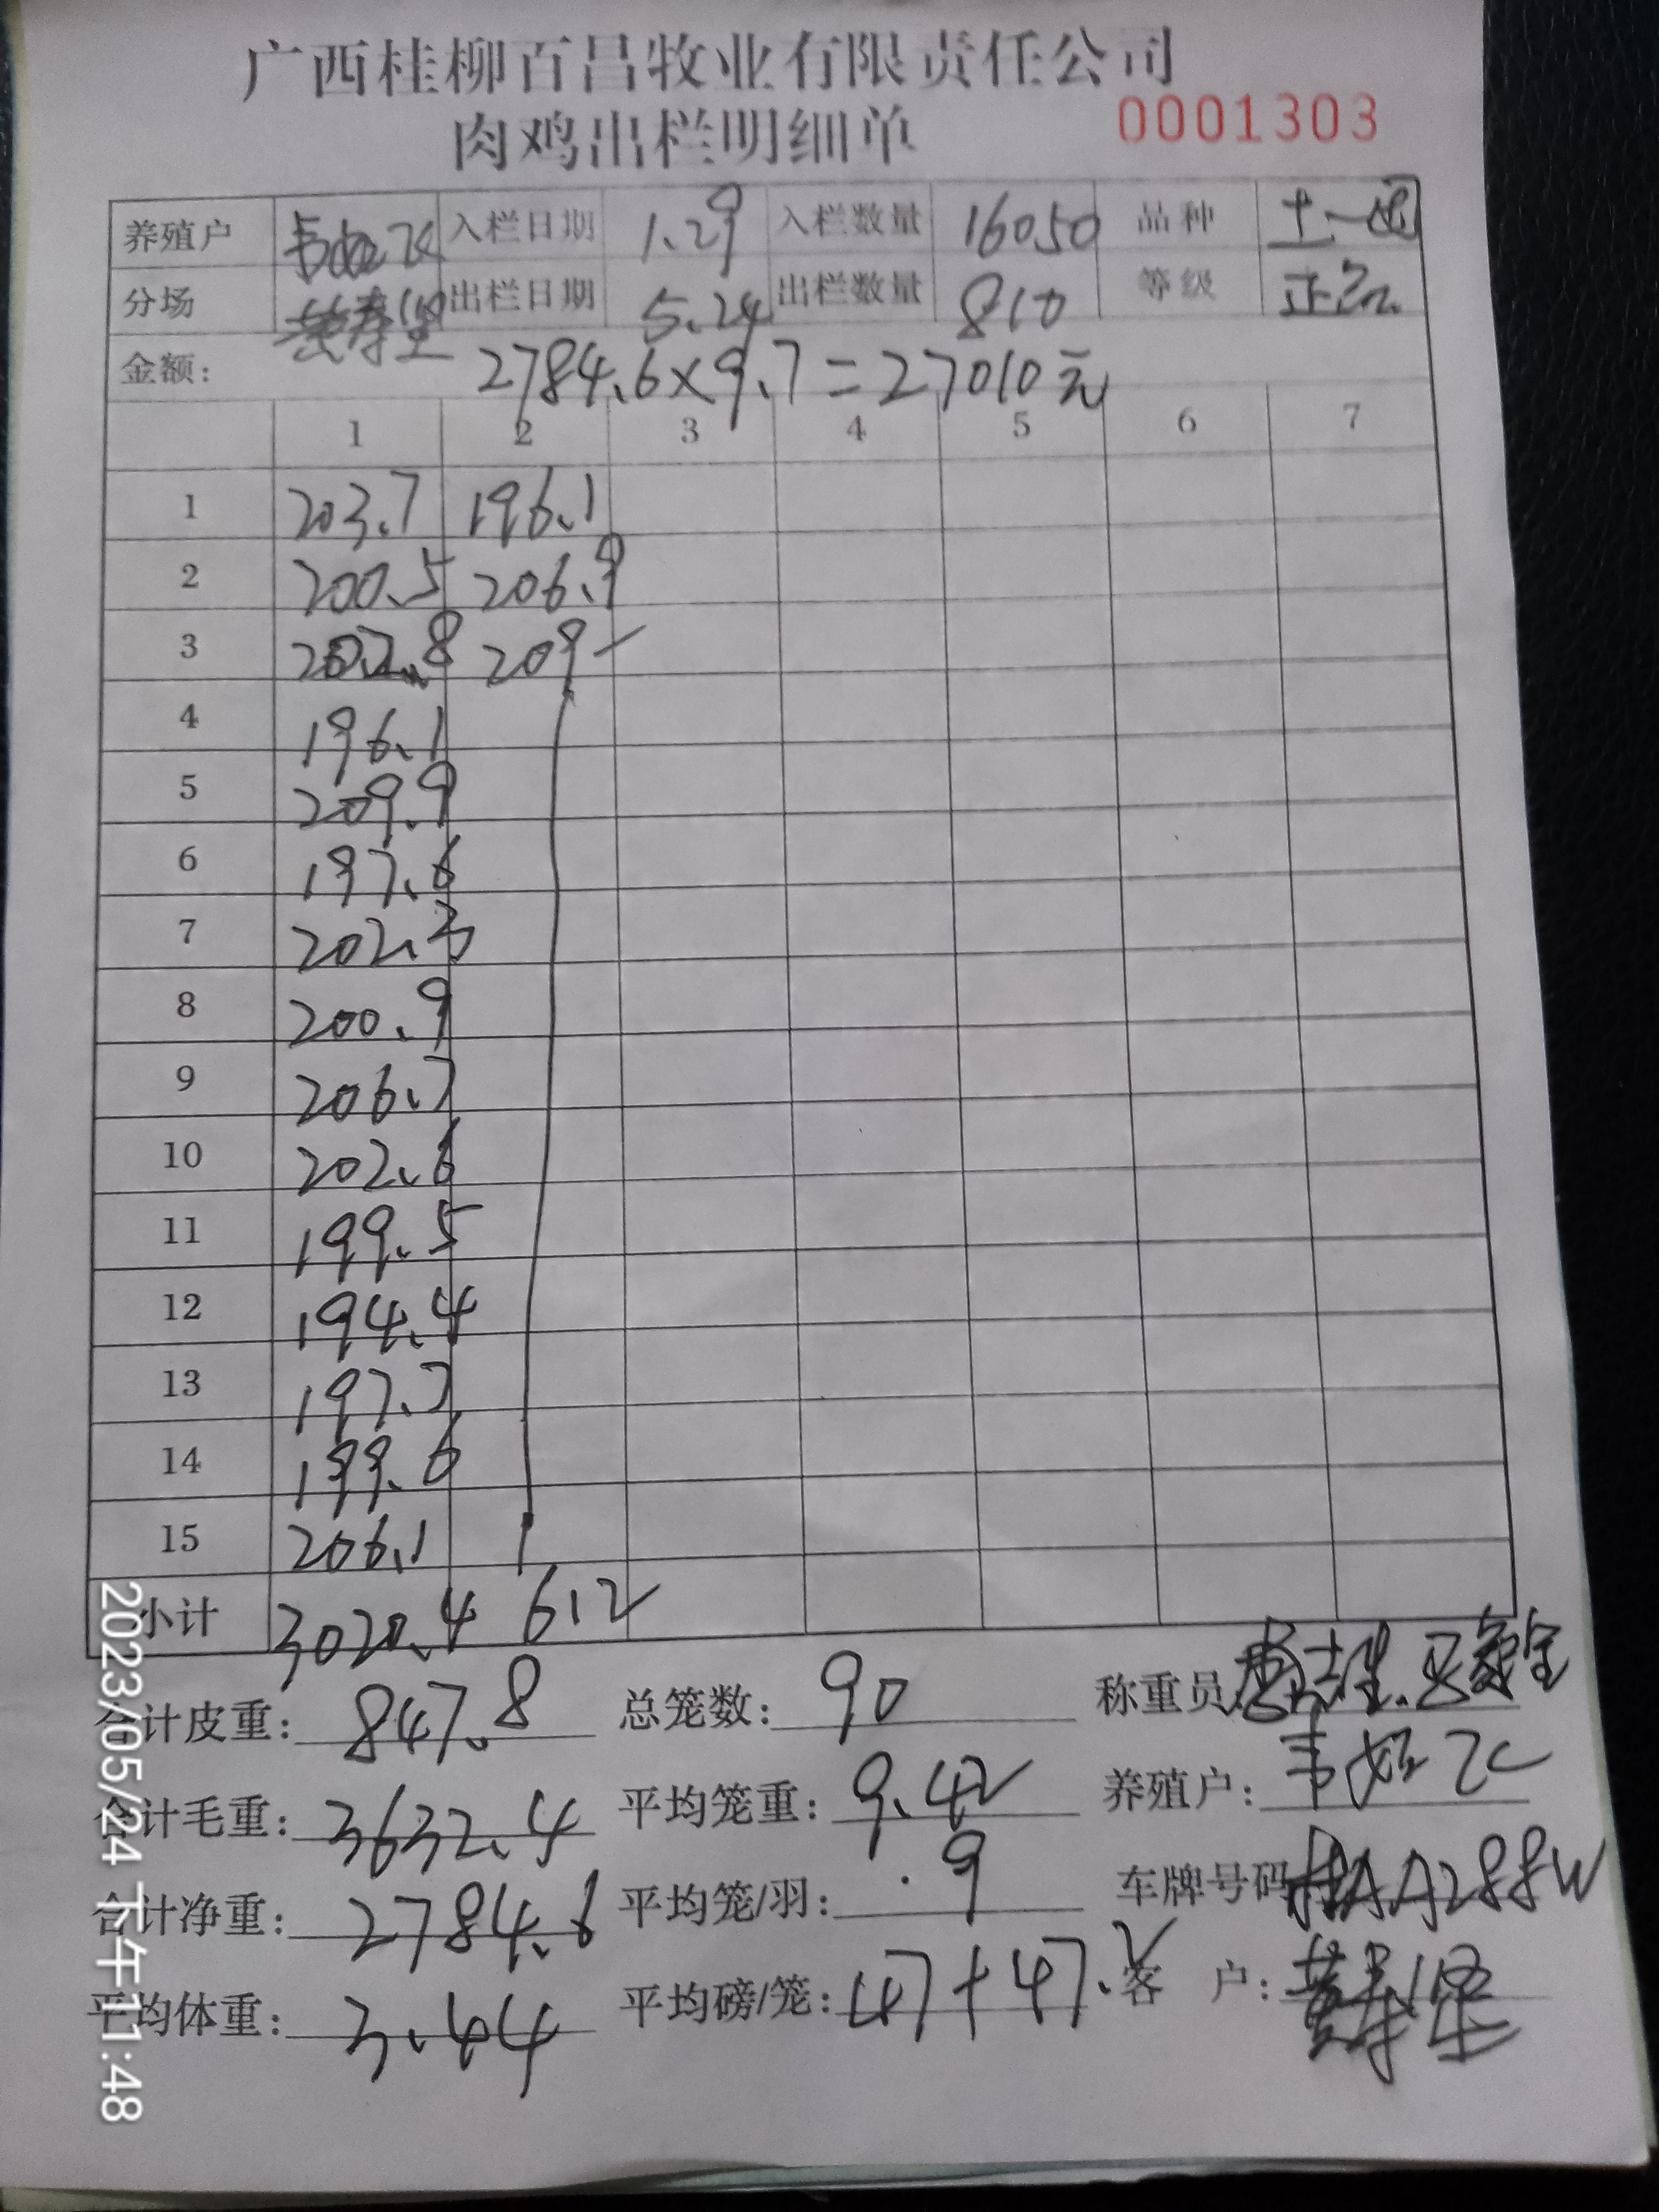 广西桂柳百昌牧业有限责任公司
肉鸡出栏明细单 0001303
养殖户 韦 入栏日期 1.29 入栏数量 16050 品种 土一
分场 黄寿坚 出栏日期 5.24 出栏数量 810 等级 正品
金额: 2784.6×9.7=27010元
1 2 3 4 5 6 7
1 203.7 196.1
2 200.5 206.9
3 202.8 209-
4 196.1
5 209.9
6 197.6
7 202.3
8 200.9
9 206.7
10 202.6
11 199.5
12 194.4
13 197.7
14 199.6
15 206.1
小计 3020.4 612
合计皮重: 847.8 总笼数: 90 称重员
合计毛重: 3632.4 平均笼重: 9.42 养殖户: 韦
合计净重: 2784.6 平均笼/羽: .9 车牌号码 桂AA288W
平均体重: 3.44 平均磅/笼: 47+47.2 客 户: 黄寿坚
2023/05/24 下午11:48